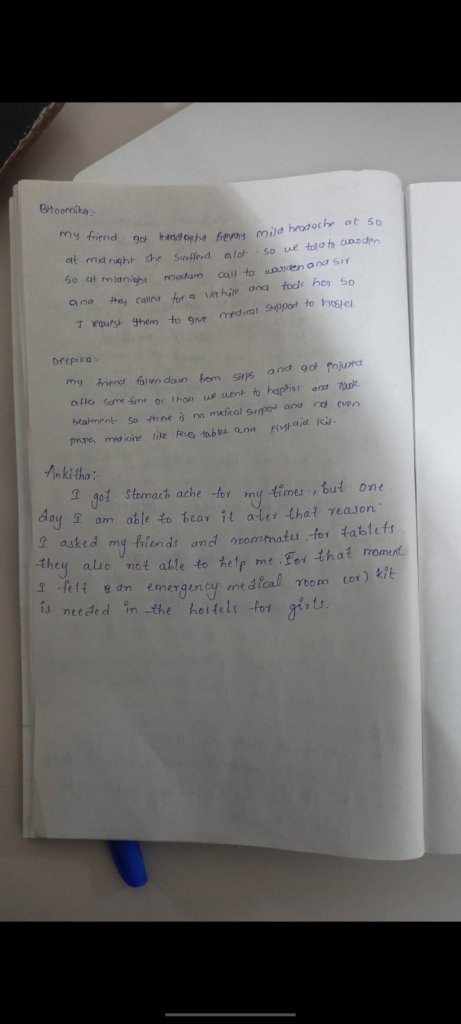 Bhoomika:-
my friend got headache mild headache at so
at midnight she sufferd alot. so we told to warden
so at midnight madam call to warden and sir
and they called for a vechile and took her so
I request them to give medical support to hostel.
Deepika:-
my friend fallen down from steps and got enjured
after some time or 1 hour we went to hospital and took
treatment so there is no medical support and not even
proper medicine like fever tablet and first aid kit.
Ankitha:-
I got stomach ache for my times, but one
day I am able to bear it ater that reason
I asked my friends and roommates for tablets
they also not able to help me. For that moment
I felt an emergency medical room (or) kit
is needed in the hostels for girls.